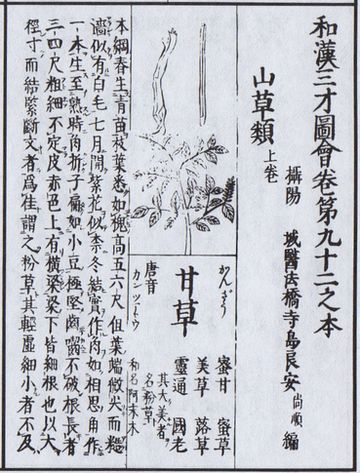 和漢三才圖會卷第九十二之本
攝陽 城醫法橋寺島良安尚順編
山草類上卷
かんざう
甘草
唐音
カンツァウ
蜜甘 蜜草
美草 蕗草
靈通 國老
其大美者
名粉草
和名阿末木
本綱春生青苗枝葉悉如槐高五六尺但葉端微尖而糙
濇似有白毛七月開紫花似柰冬結實作角如相思角作
一本生至熟時角拆子扁如小豆極堅齒嚙不破根長者
三四尺粗細不定皮亦色上有橫梁梁下皆細根也以大
徑寸而結緊斷文者爲佳謂之粉草其輕虛細小者不及